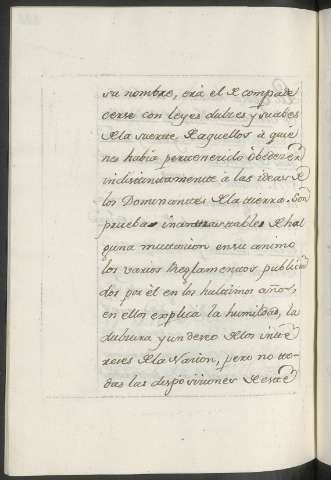 su nombre, erà el de compade
cerse con leyes dulzes y suabes
de la suerte de aquellos à quie
nes habia pertenecido obedecer
indistintamente à las ideas de
los Dominantes de la tierra. Son
pruebas incontrastables de hal
guna mutacion en su animo
los varios Reglamentos publica
dos por èl en los hultimos años,
en ellos explica la humildad, la
dulzura y un deseo de los inte
reses de la Nacion, pero no to
das las disposiciones de este